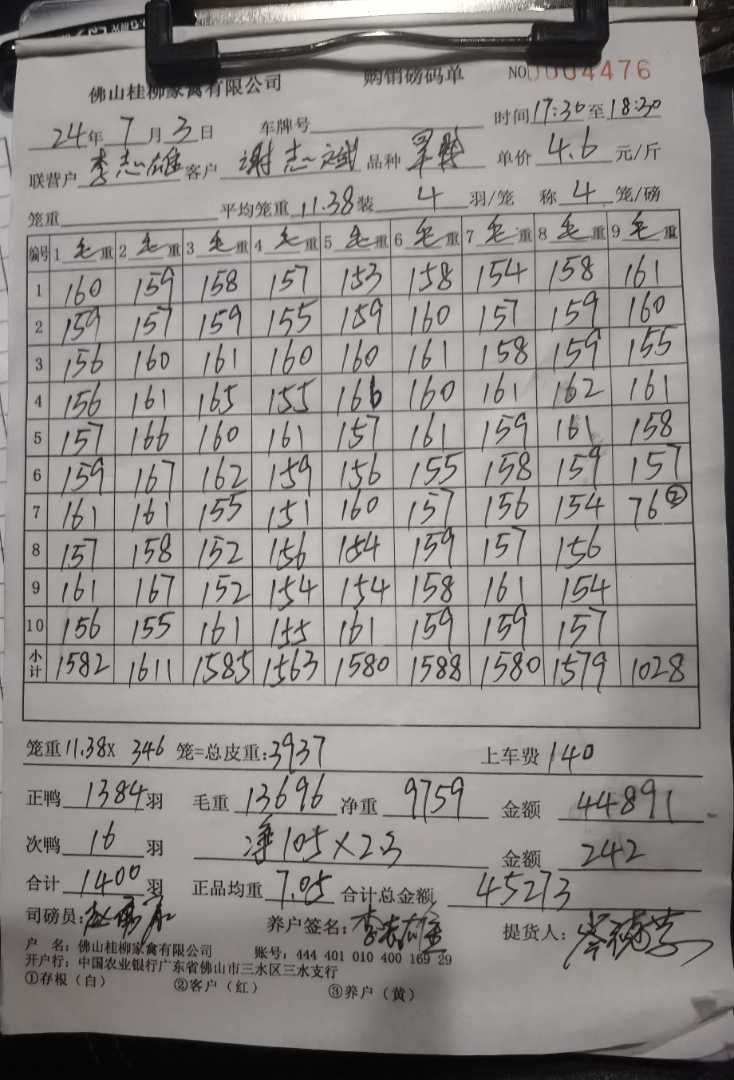 佛山桂柳家禽有限公司 购销磅码单 NO 0004476
24年 7月 3日 车牌号 时间 17:30 至 18:30
联营户 李志雄 客户 谢志斌 品种 单价 4.6 元/斤
笼重 平均笼重 11.38 装 4 羽/笼 称 4 笼/磅
编号 1 毛重 2 毛重 3 毛重 4 毛重 5 毛重 6 毛重 7 毛重 8 毛重 9 毛重
1 160 159 158 157 153 158 154 158 161
2 159 157 159 155 159 160 157 159 160
3 156 160 161 160 160 161 158 159 155
4 156 161 165 155 166 160 161 162 161
5 157 166 160 161 157 161 159 161 158
6 159 167 162 159 156 155 158 159 157
7 161 161 155 151 160 157 156 154 76②
8 157 158 152 156 154 159 157 156
9 161 167 152 154 154 158 161 154
10 156 155 161 155 161 159 159 157
小计 1582 1611 1585 1563 1580 1588 1580 1579 1028
笼重 11.38X 346 笼=总皮重: 3937 上车费 140
正鸭 1384 羽 毛重 13696 净重 9759 金额 44891
次鸭 16 羽 净105×2.3 金额 242
合计 1400 羽 正品均重 7.05 合计总金额 45273
司磅员: 养户签名: 李志雄 提货人:
户 名: 佛山桂柳家禽有限公司 账号: 444 401 010 400 169 29
开户行: 中国农业银行广东省佛山市三水区三水支行
①存根（白） ②客户（红） ③养户（黄）